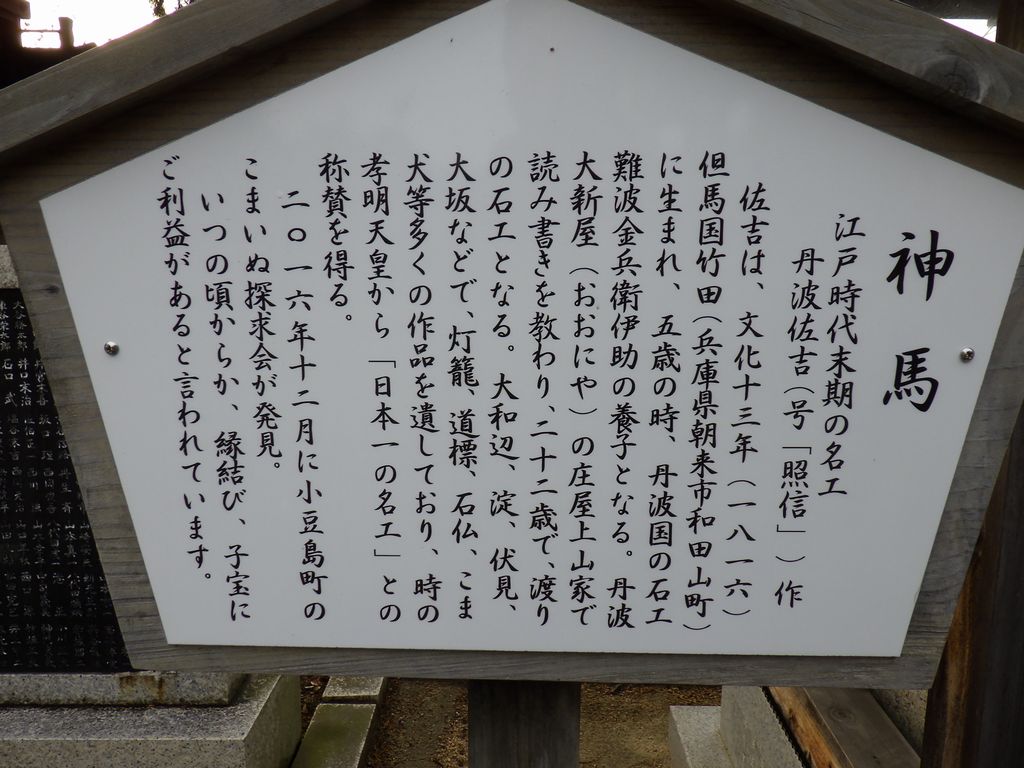 神馬
江戸時代末期の名工
丹波佐吉（号「照信」）作
佐吉は、文化十三年（一八一六）
但馬国竹田（兵庫県朝来市和田山町）
に生まれ、五歳の時、丹波国の石工
難波金兵衛伊助の養子となる。丹波
大新屋（おおにや）の庄屋上山家で
読み書きを教わり、二十二歳で、渡り
の石工となる。大和辺、淀、伏見、
大坂などで、灯籠、道標、石仏、こま
犬等多くの作品を遺しており、時の
孝明天皇から「日本一の名工」との
称賛を得る。
二〇一六年十二月に小豆島町の
こまいぬ探求会が発見。
いつの頃からか、縁結び、子宝に
ご利益があると言われています。